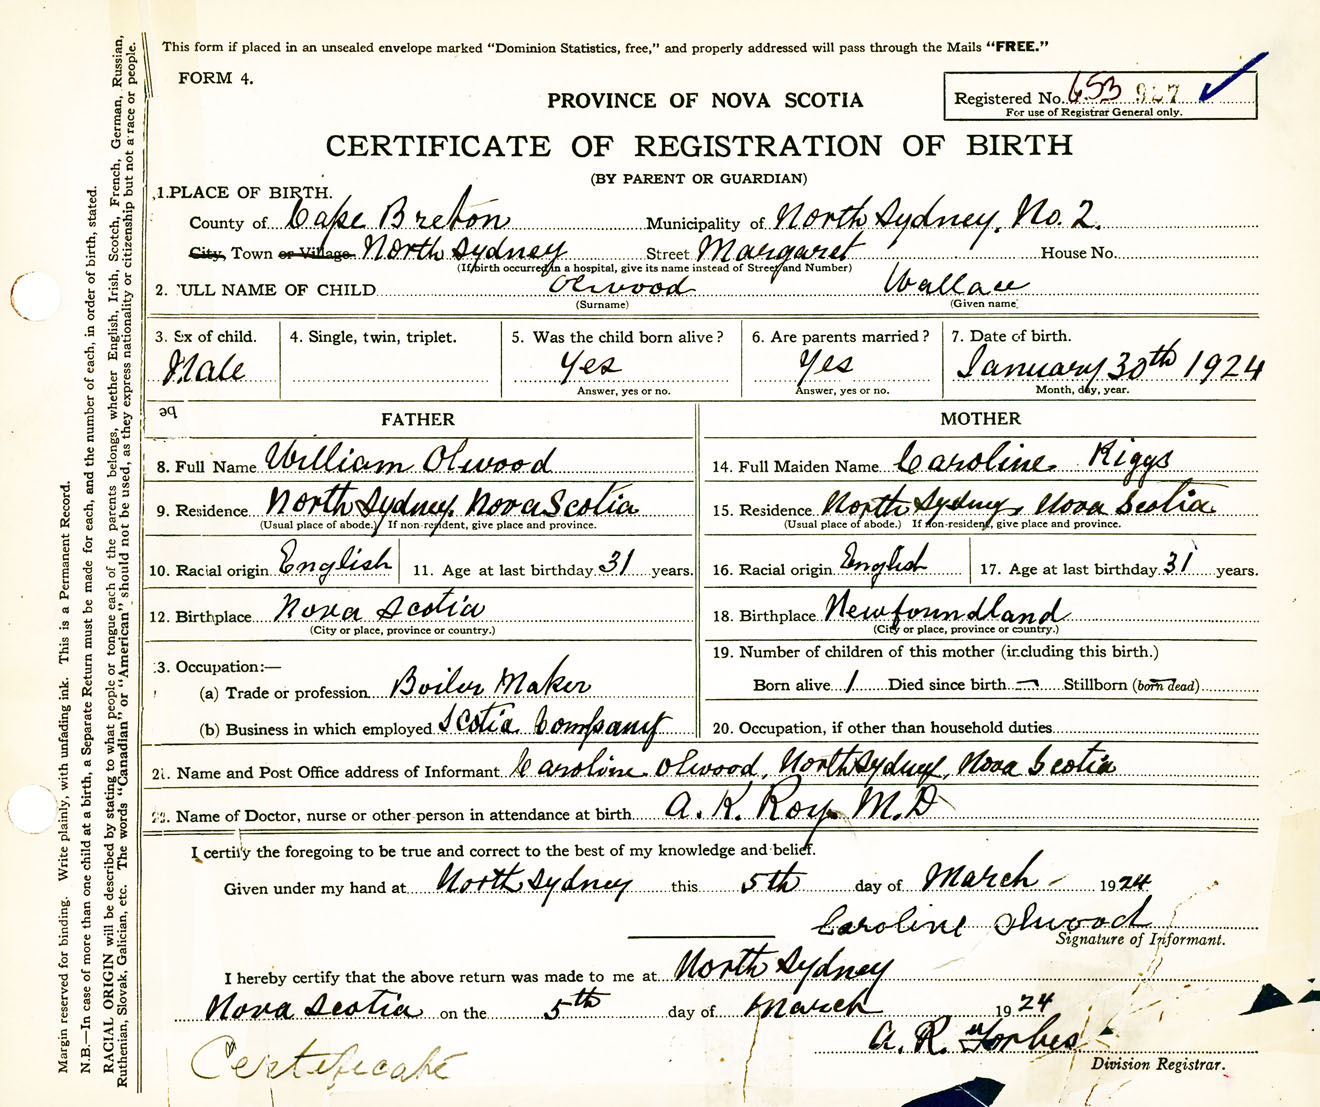 This form if placed in an unsealed envelope marked "Dominion Statistics, free," and properly addressed will pass through the Mails "FREE."
FORM 4.
Registered No. 653 927
For use of Registrar General only.
PROVINCE OF NOVA SCOTIA
CERTIFICATE OF REGISTRATION OF BIRTH
(BY PARENT OR GUARDIAN)
1.PLACE OF BIRTH.
County of Cape Breton Municipality of North Sydney, No. 2.
City, Town or Village North Sydney Street Margaret House No.
(If birth occurred in a hospital, give its name instead of Street and Number)
2. ULL NAME OF CHILD Olwood Wallace
(Surname) (Given name)
3. Sex of child. 4. Single, twin, triplet. 5. Was the child born alive? 6. Are parents married? 7. Date of birth.
Male Yes Yes January 30th 1924
Answer, yes or no. Answer, yes or no. Month, day, year.
be
FATHER MOTHER
8. Full Name William Olwood 14. Full Maiden Name Caroline Riggs
9. Residence North Sydney Nova Scotia 15. Residence North Sydney, Nova Scotia
(Usual place of abode.) If non-resident, give place and province. (Usual place of abode.) If non-resident, give place and province.
10. Racial origin English 11. Age at last birthday 31 years. 16. Racial origin English 17. Age at last birthday 31 years.
12. Birthplace Nova Scotia 18. Birthplace Newfoundland
(City or place, province or country.) (City or place, province or country.)
3. Occupation:— 19. Number of children of this mother (including this birth.)
(a) Trade or profession Boiler Maker Born alive 1 Died since birth — Stillborn (born dead)
(b) Business in which employed Scotia Company 20. Occupation, if other than household duties
21. Name and Post Office address of Informant Caroline Olwood, North Sydney, Nova Scotia
22. Name of Doctor, nurse or other person in attendance at birth A. K. Roy M.D
I certify the foregoing to be true and correct to the best of my knowledge and belief.
Given under my hand at North Sydney this 5th day of March 1924
Caroline Olwood
Signature of Informant.
I hereby certify that the above return was made to me at North Sydney
Nova Scotia on the 5th day of March 1924
A. R. Forbes
Division Registrar.
Certificate
Margin reserved for binding. Write plainly, with unfading ink. This is a Permanent Record.
N.B.—In case of more than one child at a birth, a Separate Return must be made for each, and the number of each, in order of birth, stated.
RACIAL ORIGIN will be described by stating to what people or tongue each of the parents belongs, whether English, Irish, Scotch, French, German, Russian,
Ruthenian, Slovak, Galician, etc. The words "Canadian" or "American" should not be used, as they express nationality or citizenship but not a race or people.